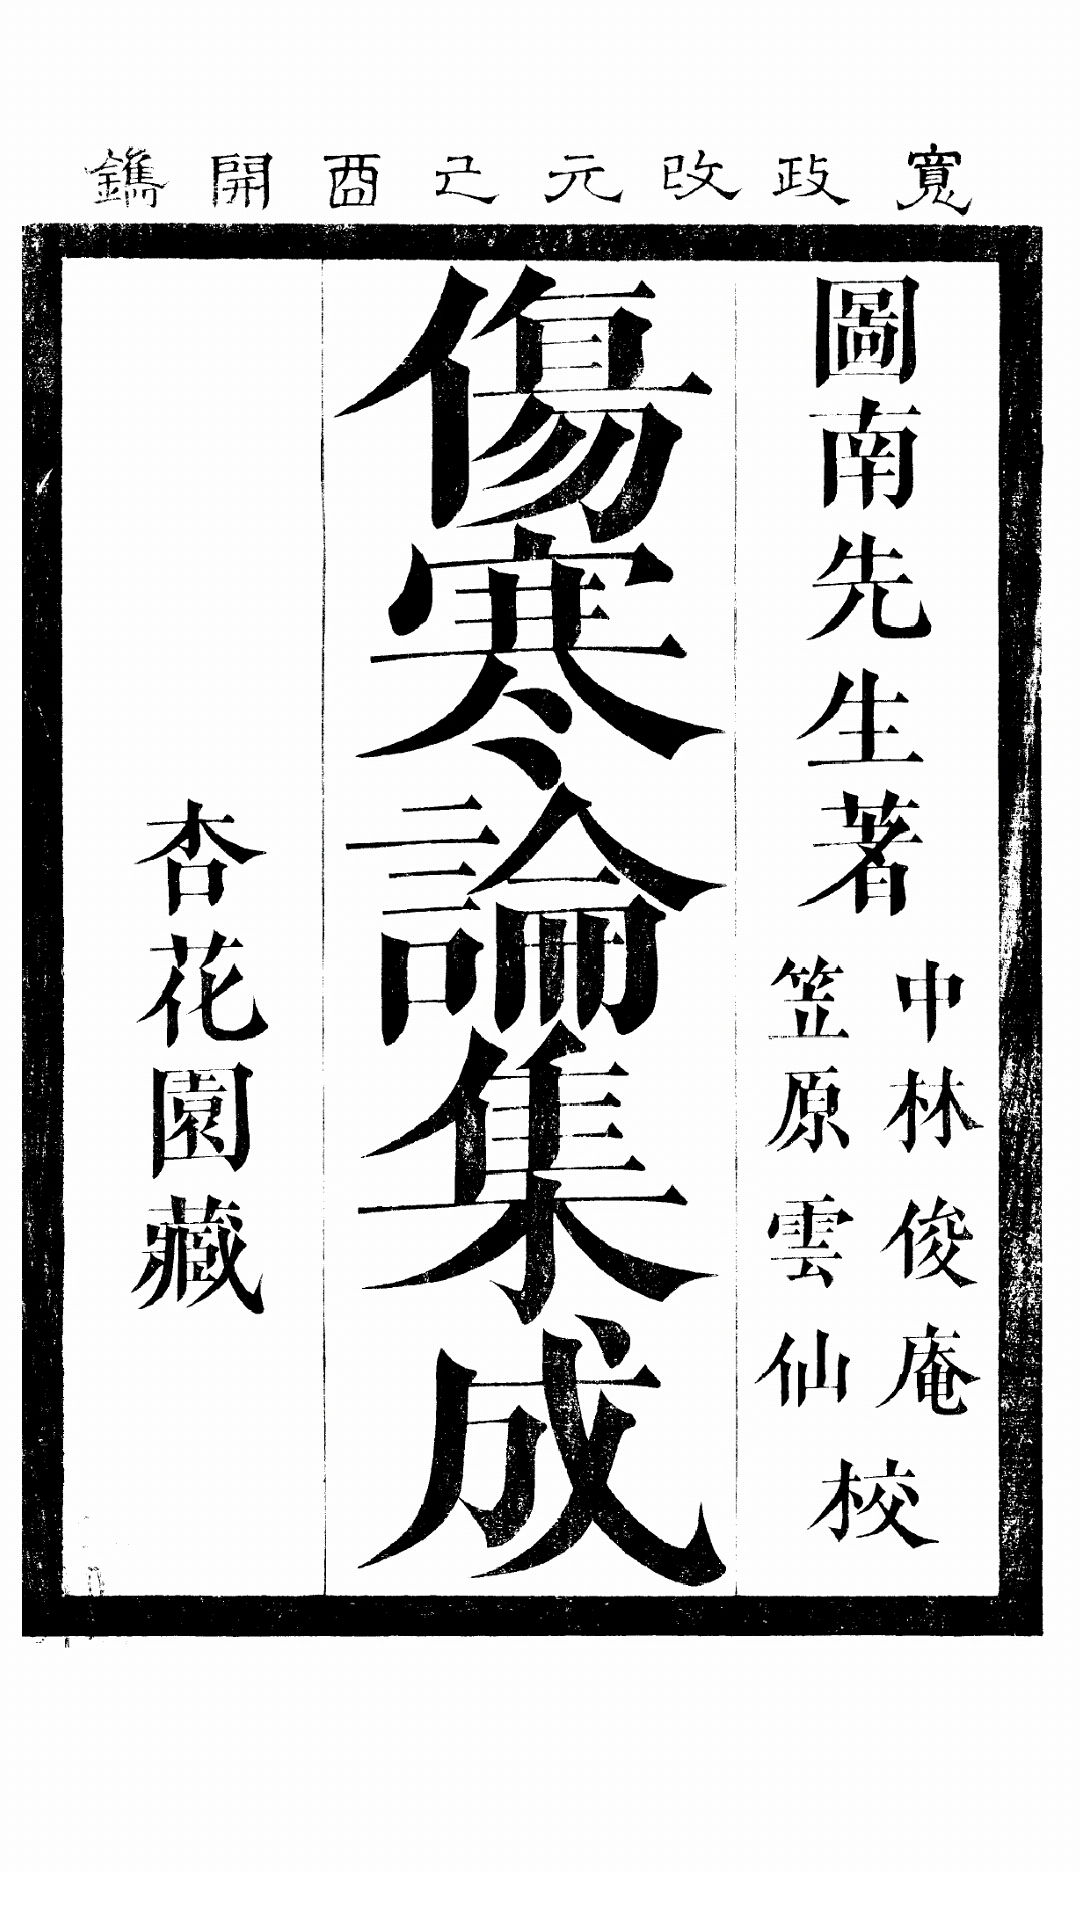 寬政改元己酉開鐫
圖南先生著
中林俊庵
笠原雲仙
校
傷寒論集成
杏花園藏